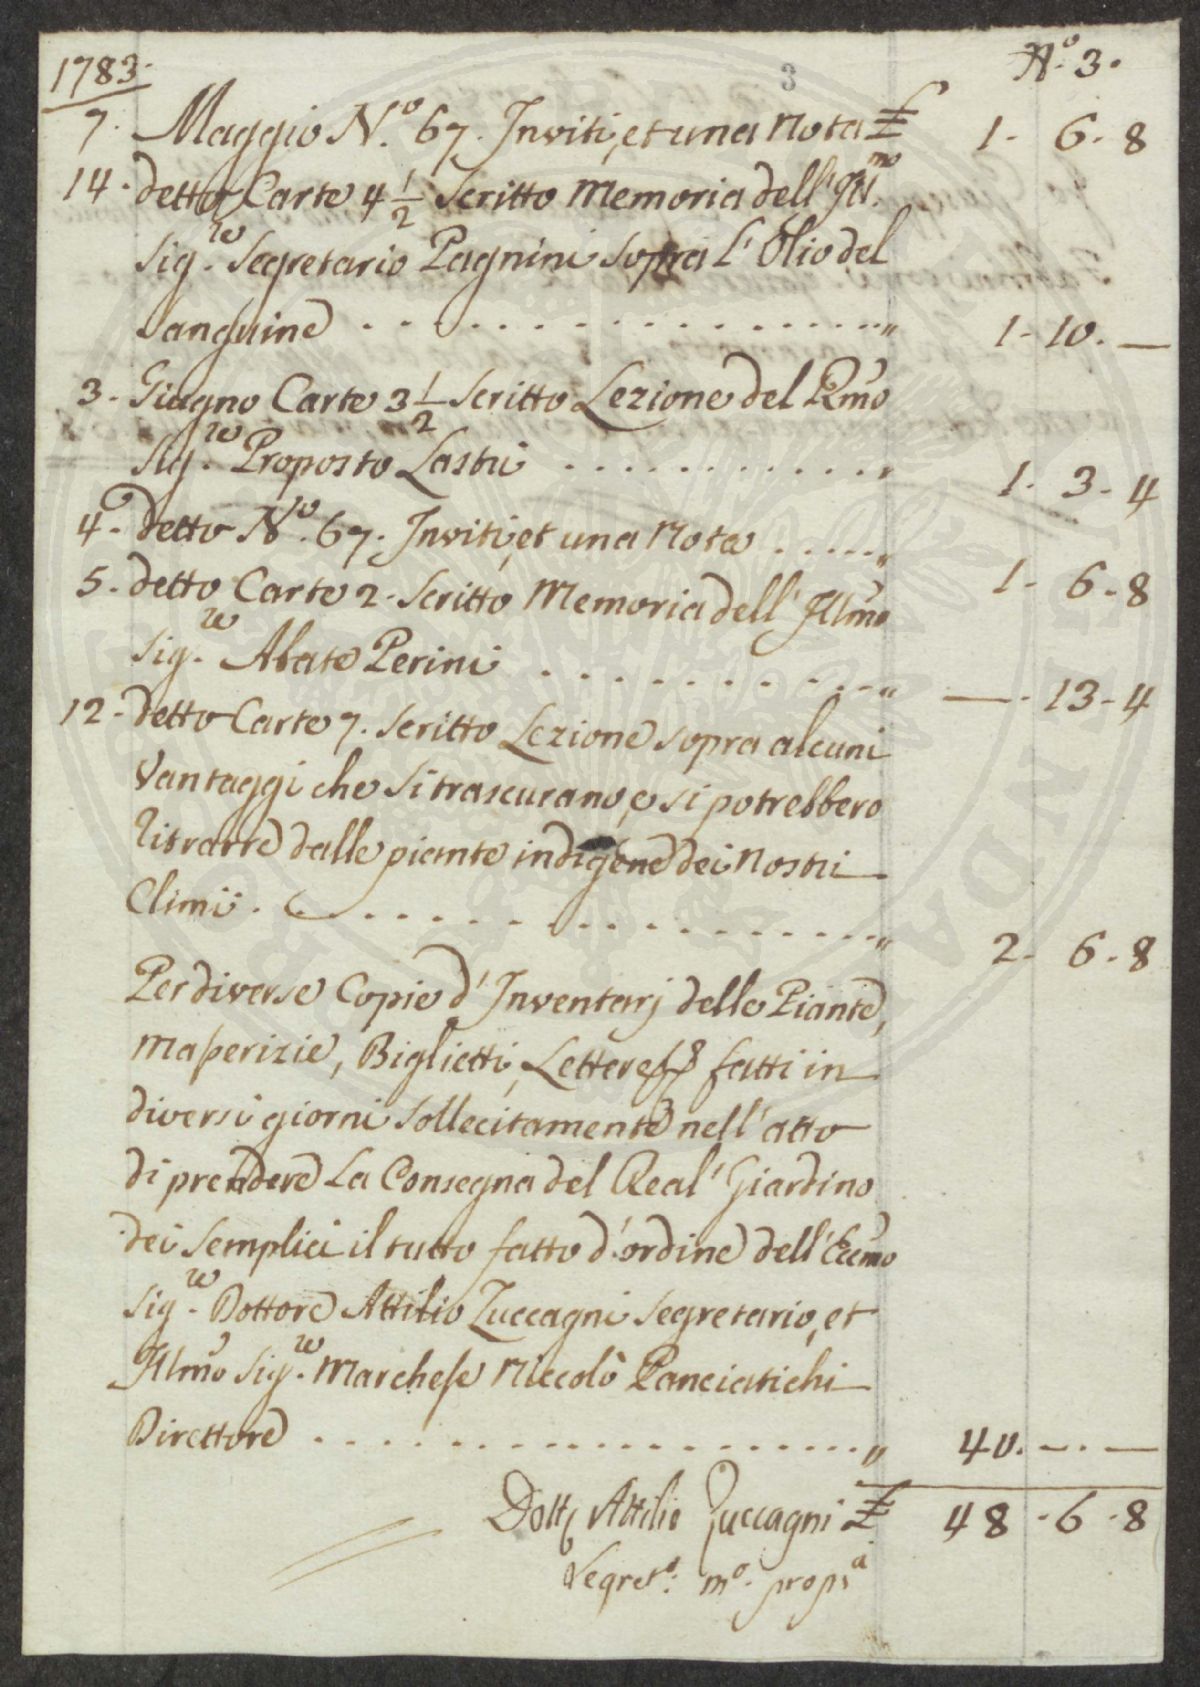 1783.
N.º 3.
3
7. Maggio N.º 67. Inviti, et una Nota £ 1. 6. 8
14. detto Carte 4 1/2 Scritto Memoria dell' Ill.mo
Sig.re Segretario Pagnini sopra L' Olio del
sanguine . . . . . . . . . . . . . . . . . . " 1. 10. —
3. Giugno Carte 3 1/2 Scritto Lezione del Rmo
Sig.re Proposto Lastri . . . . . . . . . . . . " 1. 3. 4
4. detto N.º 67. Inviti, et una Nota . . . . . " 1. 6. 8
5. detto Carte 2. Scritto Memoria dell' Illmo
Sig.re Abate Perini . . . . . . . . . . . " —. 13. 4
12. detto Carte 7. Scritto Lezione sopra alcuni
Vantaggi che si trascurano, e si potrebbero
Ritrarre dalle piante indigene dei Nostri
Climii . . . . . . . . . . . . . . . . . . . " 2. 6. 8
Per diverse Copie d' Inventarj delle Piante,
Masserizie, Biglietti, Lettere fatti in
diversi giorni sollecitamente nell' atto
di prendere La Consegna del Real' Giardino
dei Semplici il tutto fatto d' ordine dell' Eccmo
Sig.re Dottore Attilio Zuccagni Segretario, et
Illmo Sig.re Marchese Niccolò Panciatichi
Direttore . . . . . . . . . . . . . . . . . " 40. —. —
Dott. Attilio Zuccagni £ 48. 6. 8
Segret.º: m.º propr.a